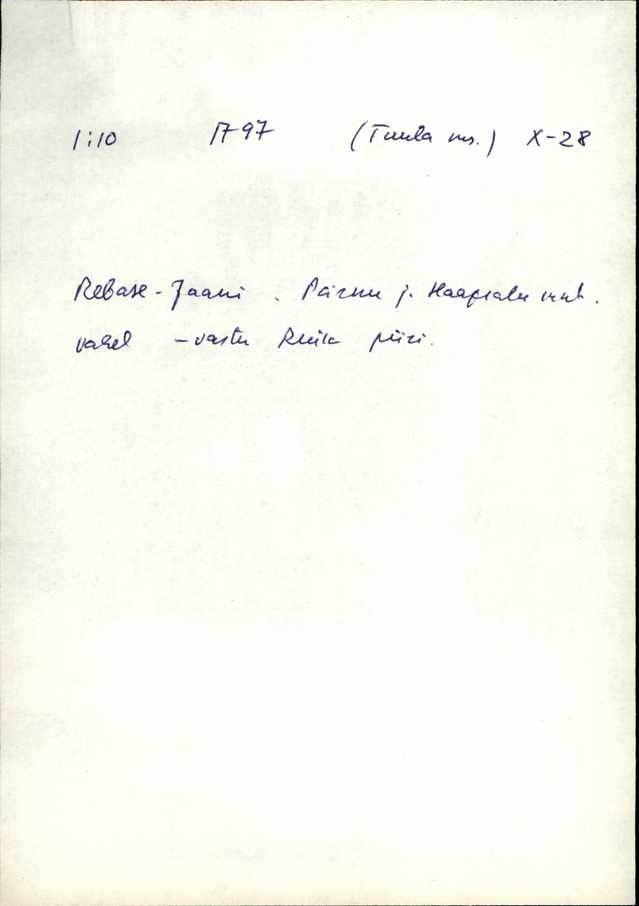 1:10 1797 (Tuula ms.) X-28
Rebase-Jaani. Pärnu j. Haapsalu mnt.
vahel - vastu Ruila piiri.